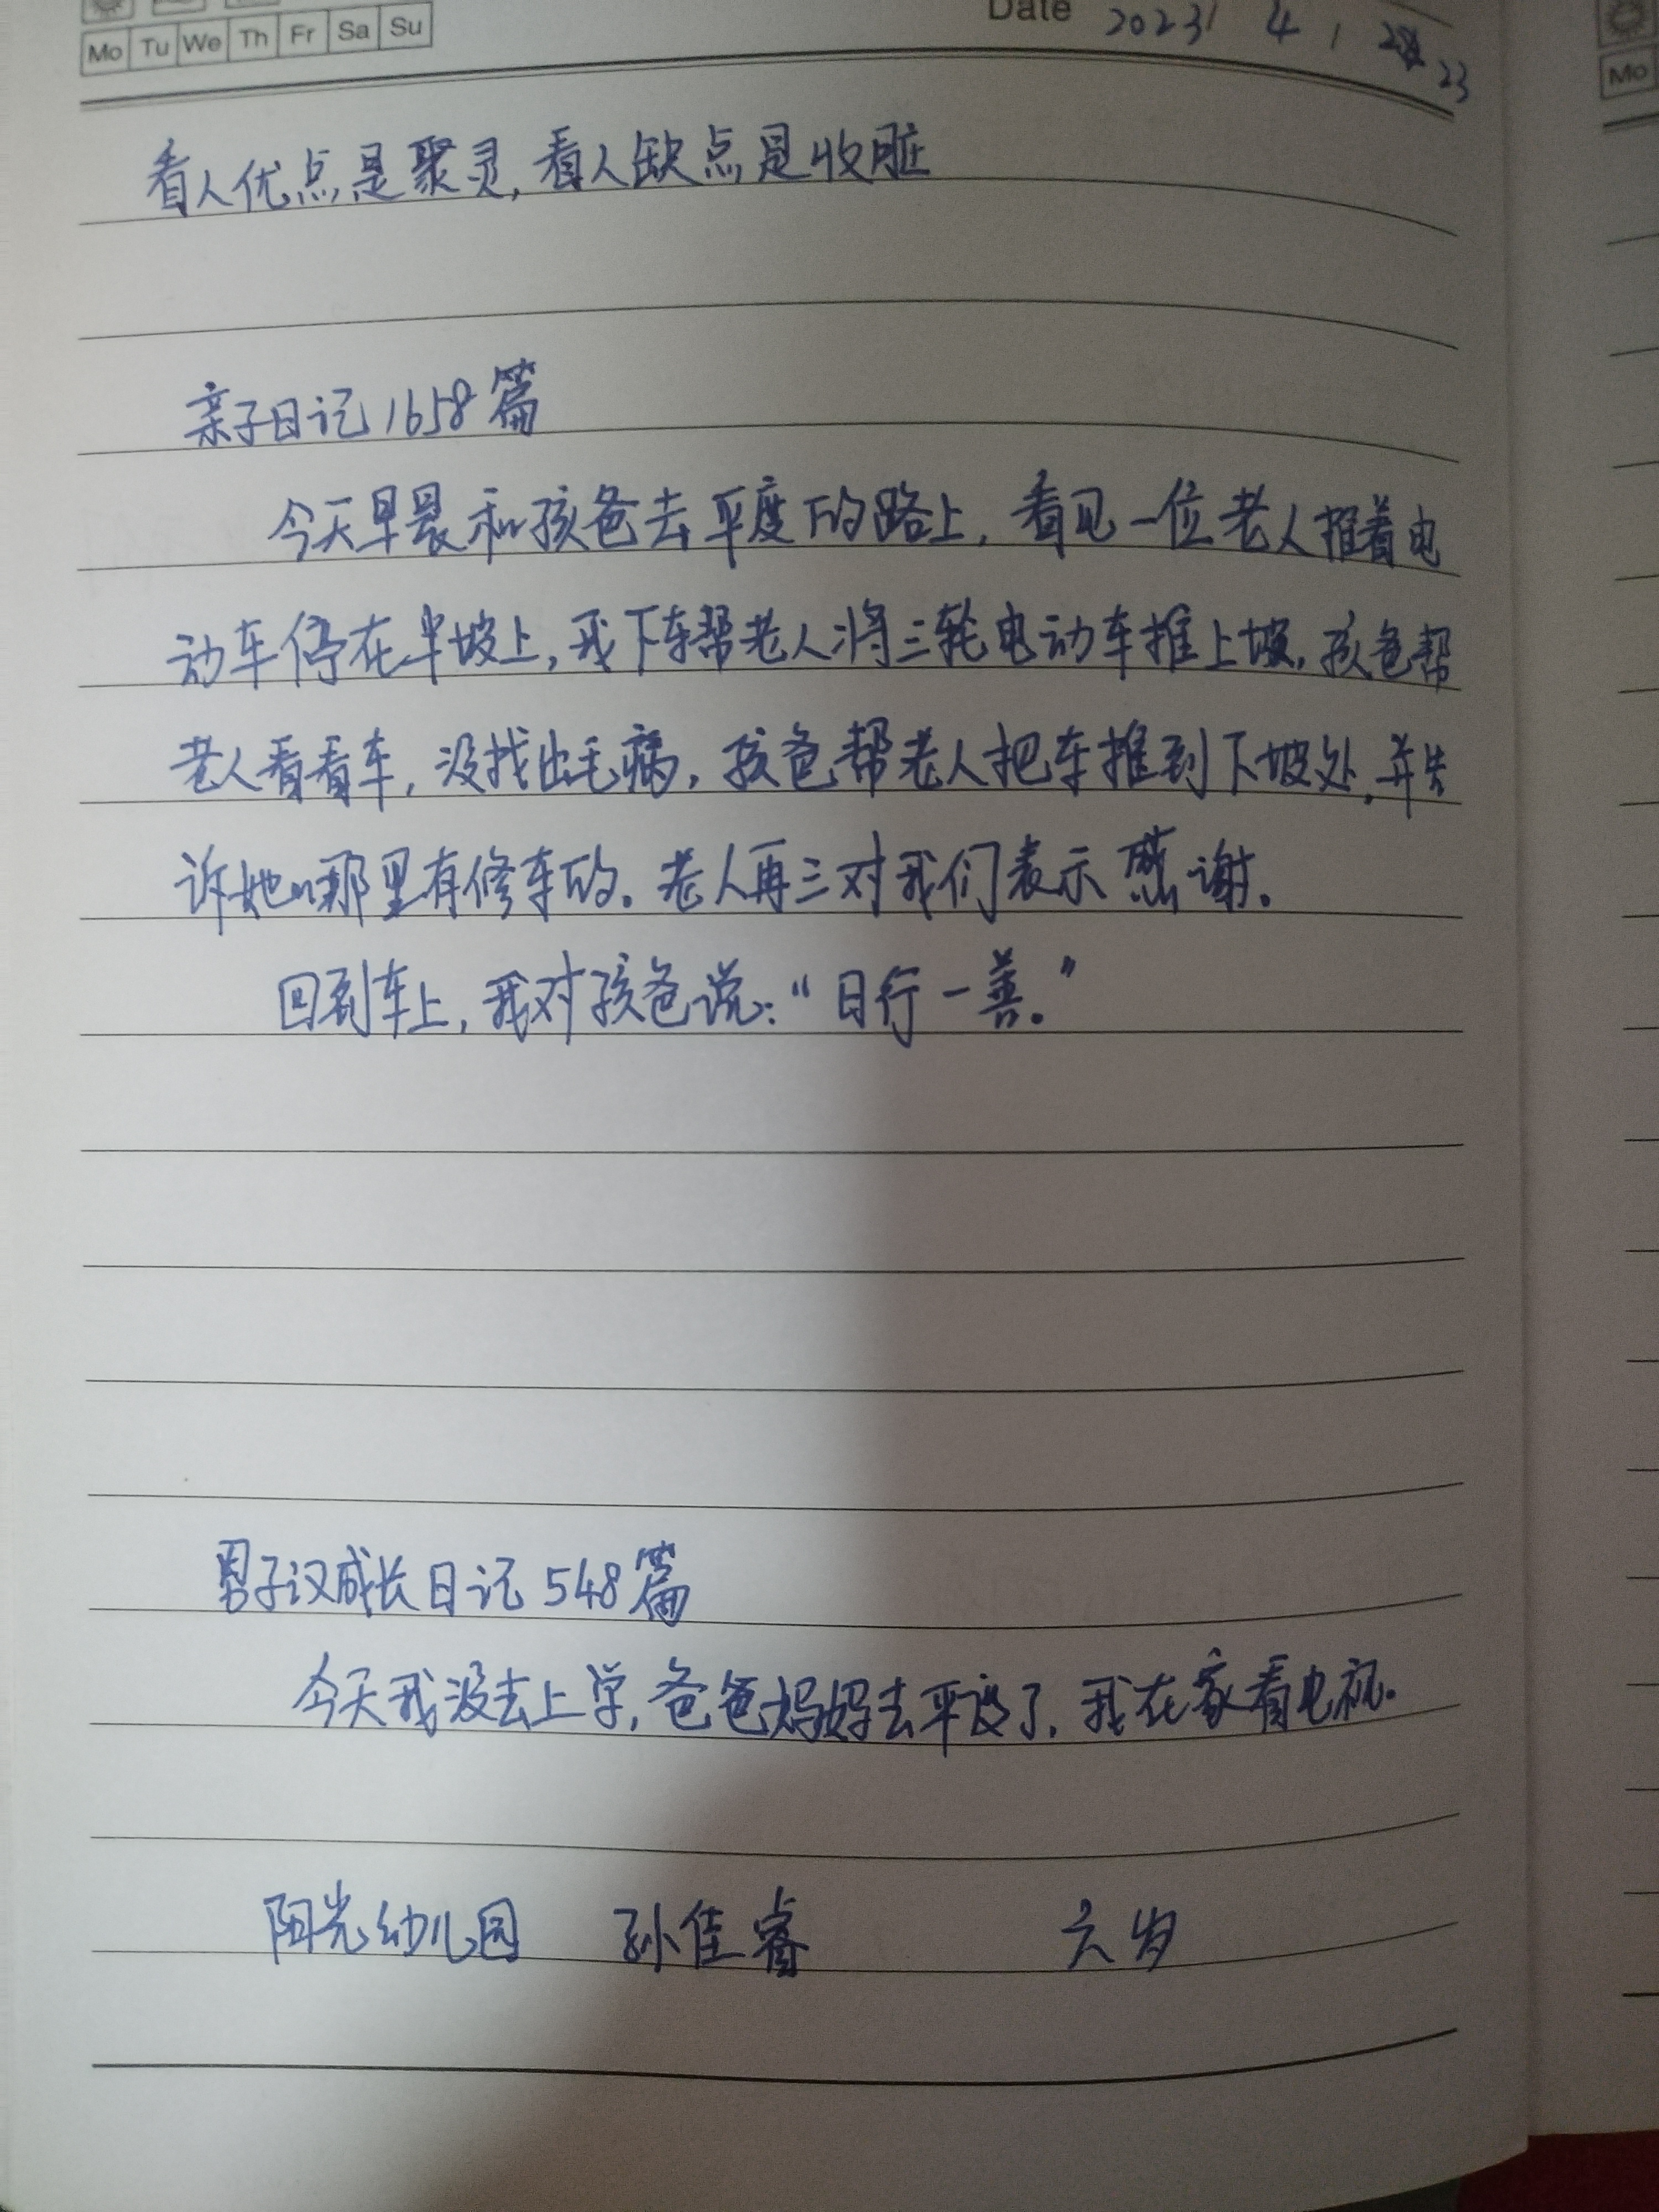 Mo Tu We Th Fr Sa Su
Date 2023 / 4 / 23
Mo
看人优点是聚灵,看人缺点是收脏
亲子日记1658篇
今天早晨和孩爸去平度的路上,看见一位老人推着电
动车停在半坡上,我下车帮老人将三轮电动车推上坡,孩爸帮
老人看看车,没找出毛病,孩爸帮老人把车推到下坡处,并告
诉她哪里有修车的。老人再三对我们表示感谢。
回到车上,我对孩爸说:“日行一善。”
男子汉成长日记548篇
今天我没去上学,爸爸妈妈去平度了,我在家看电视。
阳光幼儿园 孙佳睿 六岁